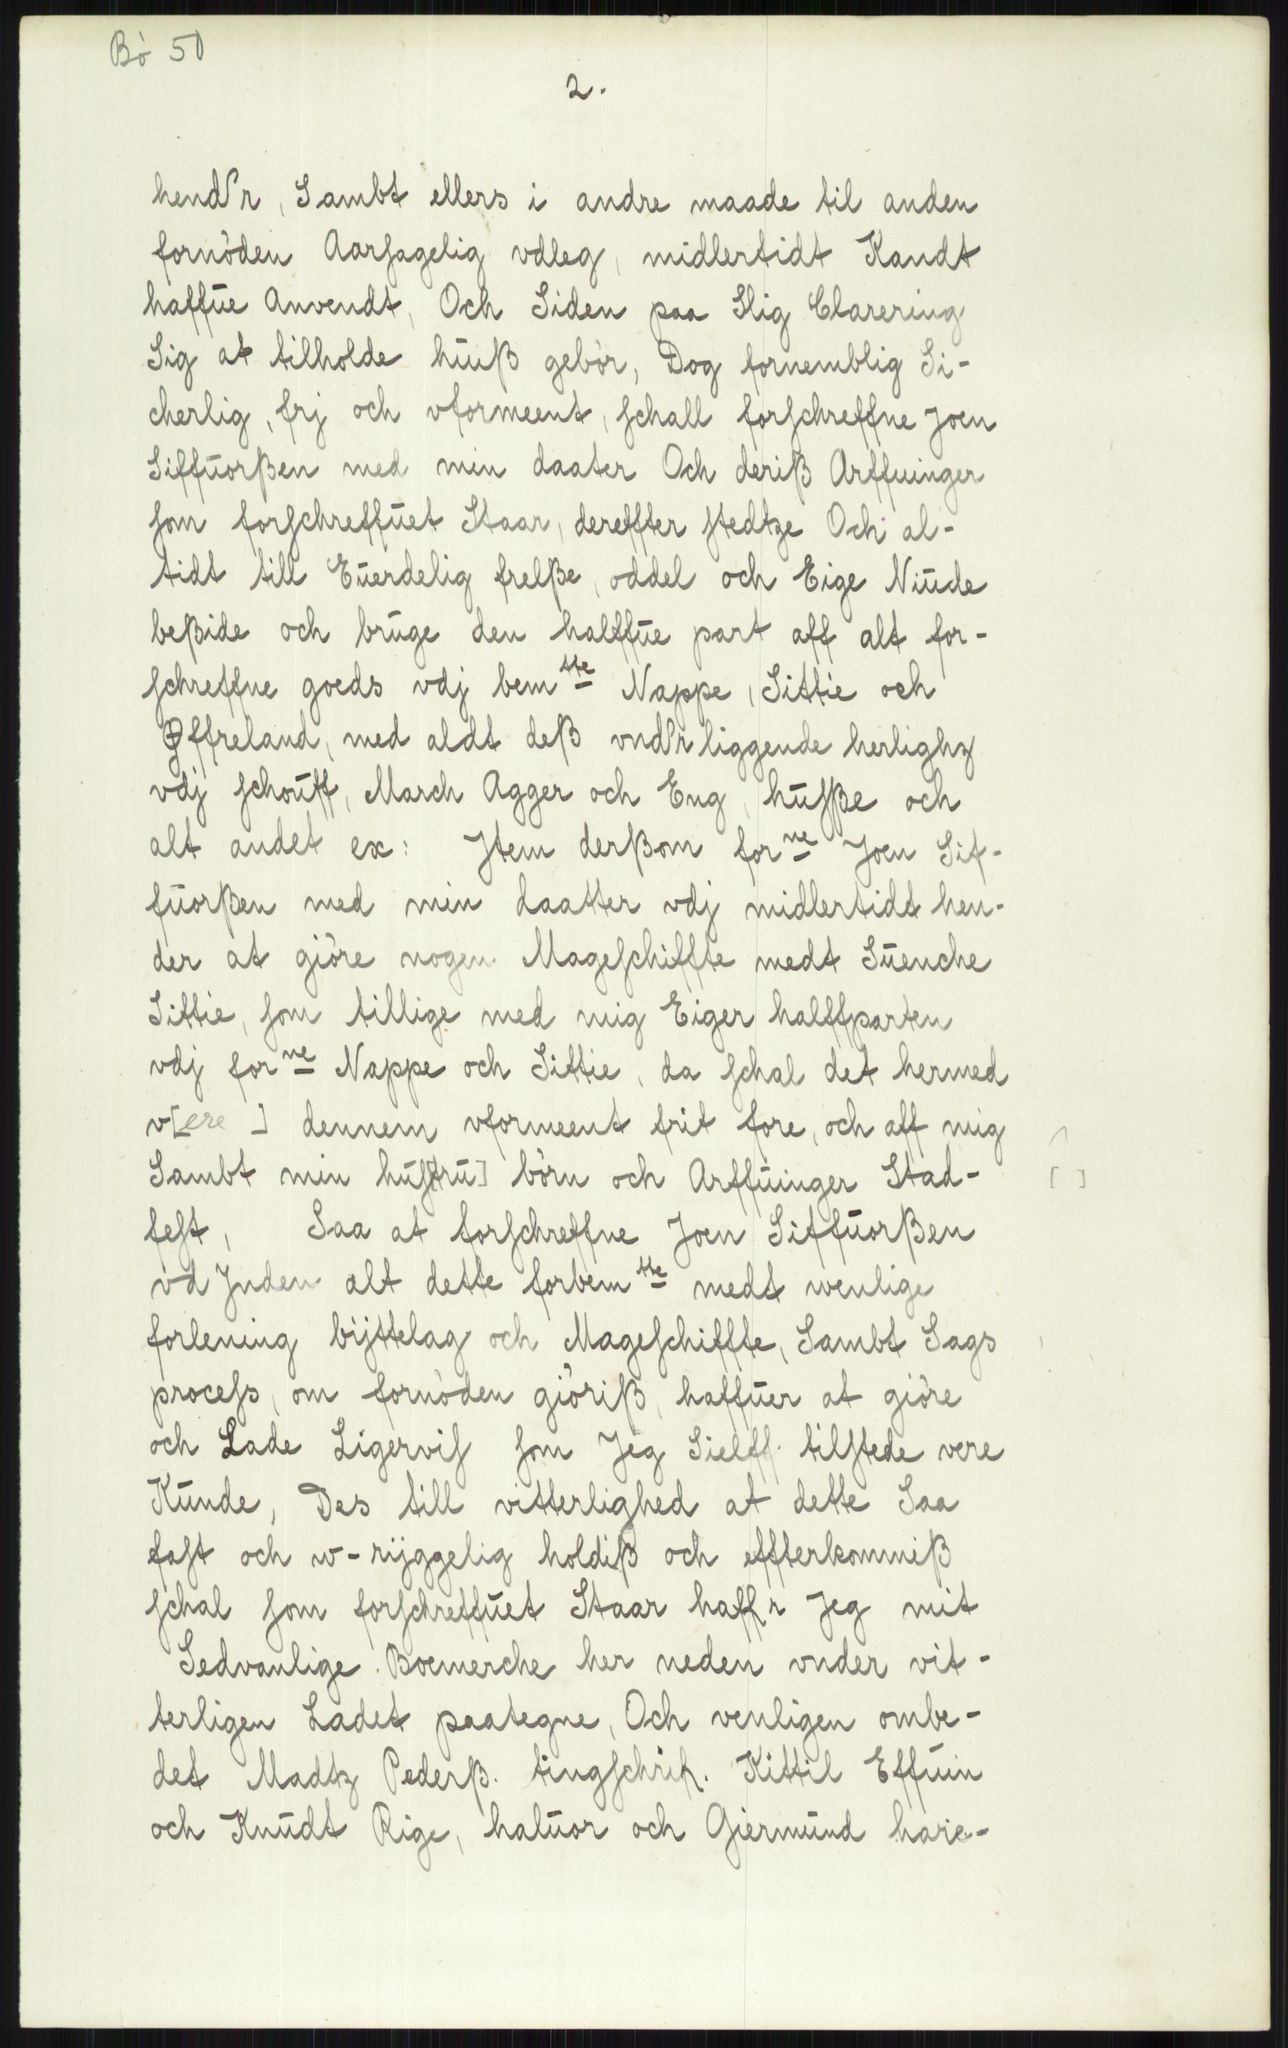 Bö 50
2.
hend'r, Sambt ellers i andre maade til anden
fornöden Aarsagelig vdleg, midlertidt Kandt
haffue Anvendt, Och Siden paa Slig Clarering
Sig at tilholde huiß gebör, Dog fornemblig Si-
cherlig, frj och vformeent, schall forschreffne Joen
Siffuorßen med min daater Och deriß Arffuinger
som forschreffuet Staar, dereffter stedtze Och al-
tidt till Euerdelig frelße, oddel och Eige Niude
beßide och bruge den halffue part aff alt for-
schreffne goeds vdj bem<sup>tte</sup> Nappe, Sittie och
Øffreland, med aldt deß vnd'r liggende herlighz
vdj schouff, March Agger och Eng, husße och
alt andet ex: Jtem derßom for<sup>ne</sup> Joen Sif-
fuorßen med min daatter vdj midlertidt hen-
der at giöre nogen Mageschiffte medt Suenche
Sittie, som tillige med mig Eiger halffparten
vdj for<sup>ne</sup> Nappe och Sittie, da schal det hermed
v[ere ] dennem vformeent frit fore, och aff mig
Sambt min hus[tru] börn och Arffuinger Stad-
[ ]
fest, Saa at forschreffne Joen Siffuorßen
vd Jnden alt dette forbem<sup>tte</sup> medt wenlige
forlening bijttelag och Mageschiffte, Sambt Sags
process, om fornöden giöriß, haffuer at giöre
och Lade Ligervis som Jeg Sielff tilstede vere
Kunde, Des till vitterlighed at dette Saa
fast och w-rijggelig holdiß och effterkommiß
schal som forschreffuet Staar haff'r Jeg mit
Sedvanlige Boemerche her neden vnder vit-
terligen Ladet paategne, Och venligen ombe-
det Madtz Pederß. tingschrif. Kittil Effuin
och Knudt Rige, haluor och Giermund hare-